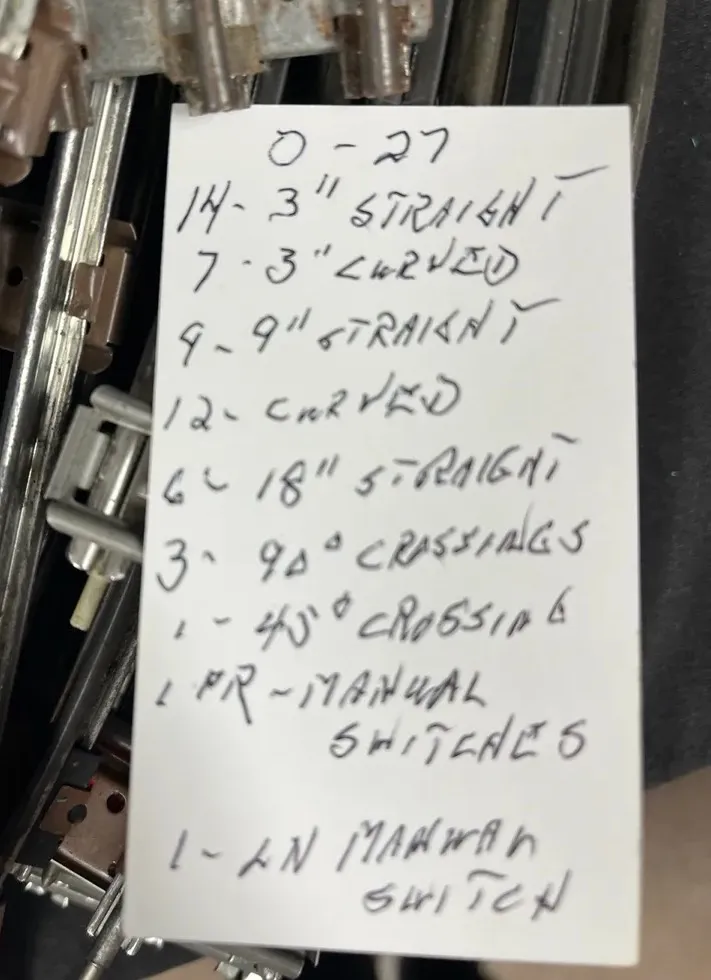 0-27
14- 3" STRAIGHT
7 - 3" CURVED
9- 9" STRAIGHT
12- CURVED
6- 18" STRAIGHT
3- 90° CROSSINGS
1- 45° CROSSING
1 PR-MANUAL
SWITCHES
1- LN MANUAL
SWITCH